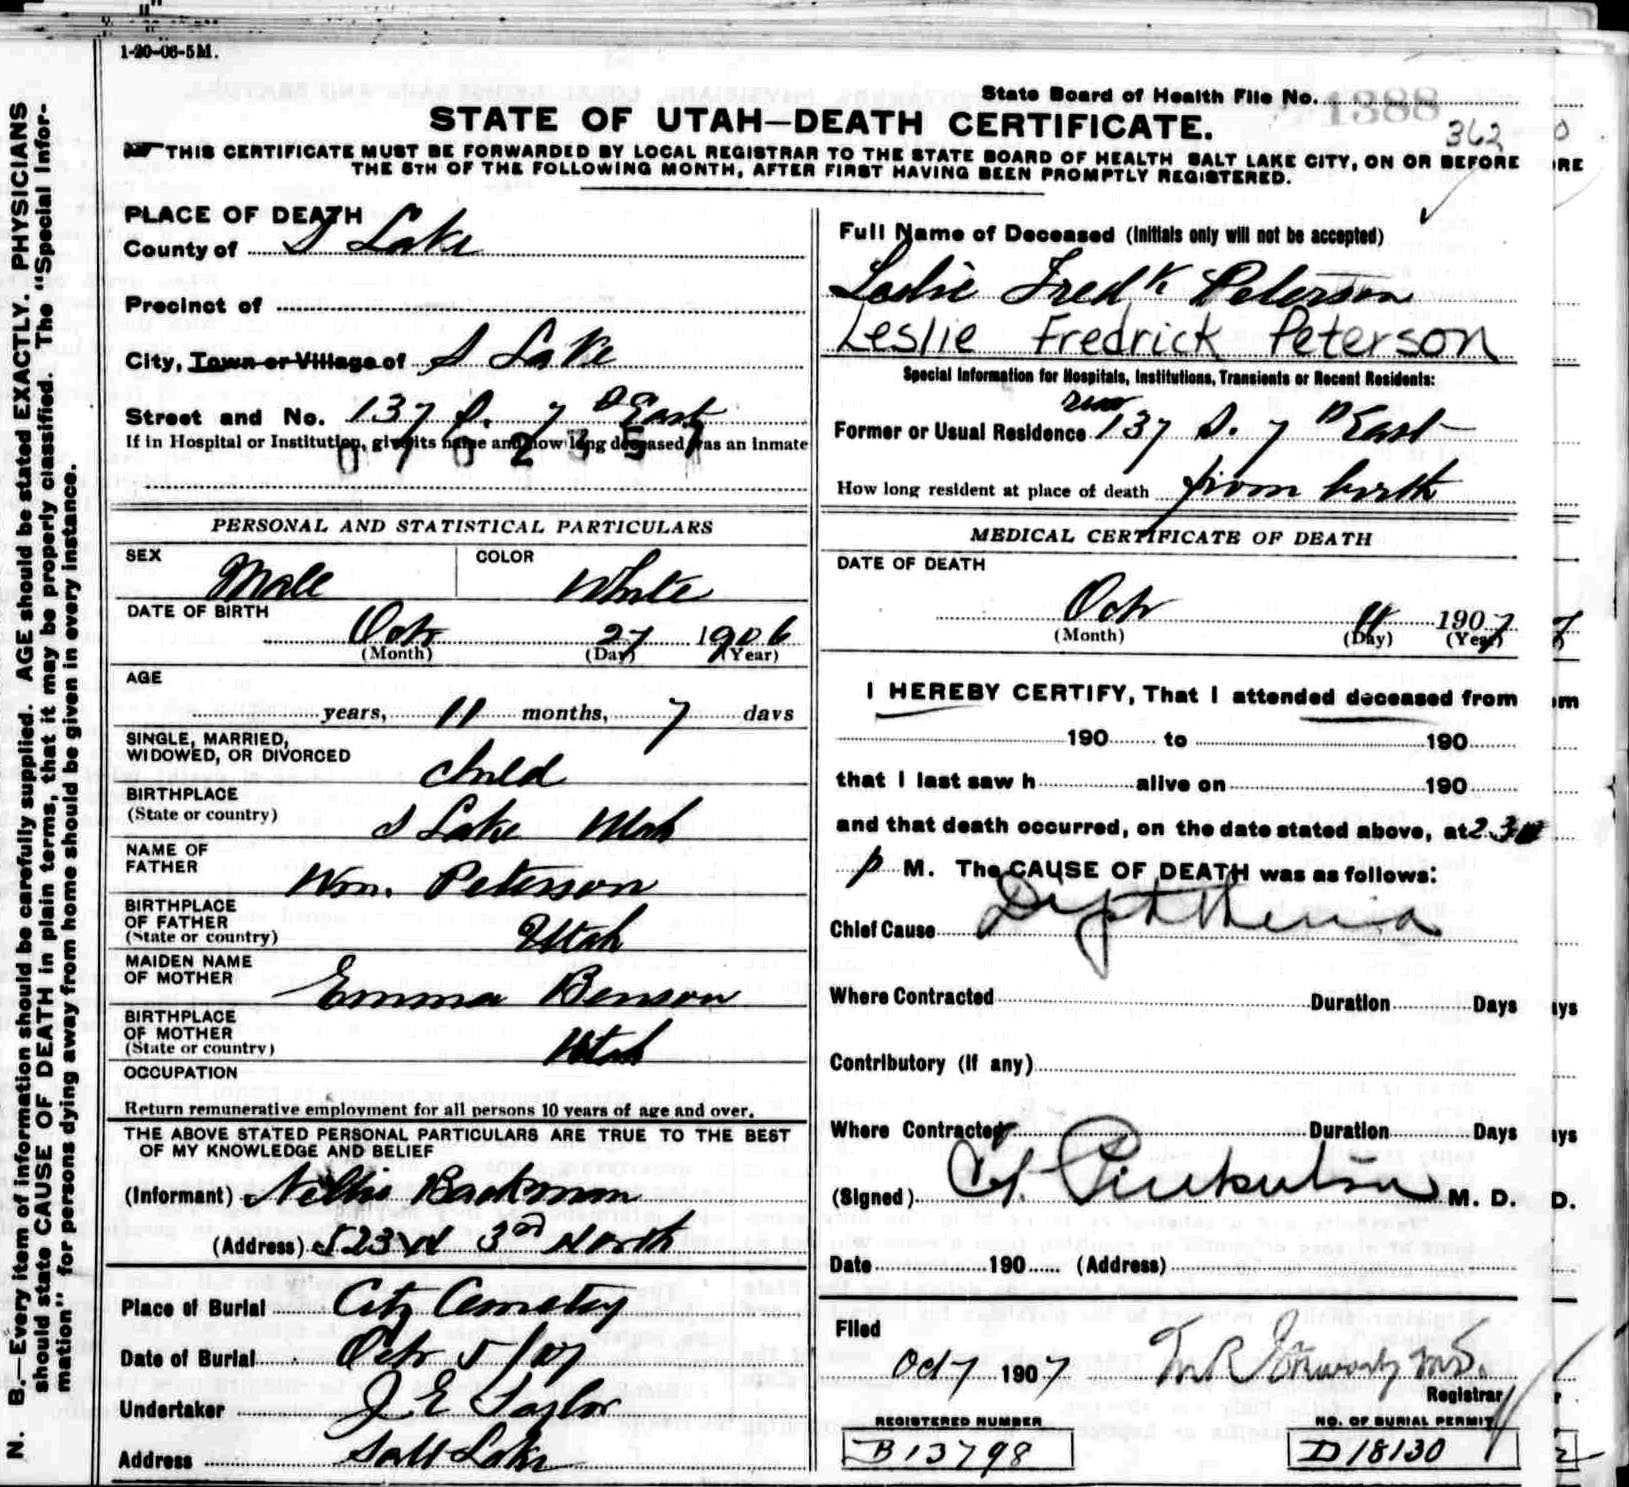 1-20-06-5M.
State Board of Health File No. 1388
362
STATE OF UTAH—DEATH CERTIFICATE.
THIS CERTIFICATE MUST BE FORWARDED BY LOCAL REGISTRAR TO THE STATE BOARD OF HEALTH SALT LAKE CITY, ON OR BEFORE
THE 5TH OF THE FOLLOWING MONTH, AFTER FIRST HAVING BEEN PROMPTLY REGISTERED.
N. B.—Every item of information should be carefully supplied. AGE should be stated EXACTLY. PHYSICIANS
should state CAUSE OF DEATH in plain terms, that it may be properly classified. The "Special Infor-
mation" for persons dying away from home should be given in every instance.
PLACE OF DEATH
County of S Lake
Precinct of
City, Town or Village of S Lake
Street and No. 137 S. 7 East
If in Hospital or Institution, give its name and how long deceased was an Inmate
PERSONAL AND STATISTICAL PARTICULARS
SEX Male COLOR White
DATE OF BIRTH
Oct 27 1906
(Month) (Day) (Year)
AGE
years, 11 months, 7 days
SINGLE, MARRIED,
WIDOWED, OR DIVORCED child
BIRTHPLACE
(State or country) S Lake Utah
NAME OF
FATHER Wm. Peterson
BIRTHPLACE
OF FATHER
(State or country) Utah
MAIDEN NAME
OF MOTHER Emma Benson
BIRTHPLACE
OF MOTHER
(State or country) Utah
OCCUPATION
Return remunerative employment for all persons 10 years of age and over.
THE ABOVE STATED PERSONAL PARTICULARS ARE TRUE TO THE BEST
OF MY KNOWLEDGE AND BELIEF
(Informant) Nellie Backman
(Address) 523 W 3rd North
Place of Burial City Cemetery
Date of Burial Oct 5/07
Undertaker J E Taylor
Address Salt Lake
Full Name of Deceased (Initials only will not be accepted)
Leslie Fredk Peterson
Leslie Fredrick Peterson
Special Information for Hospitals, Institutions, Transients or Recent Residents:
rear
Former or Usual Residence 137 S. 7 East
How long resident at place of death from birth
MEDICAL CERTIFICATE OF DEATH
DATE OF DEATH
Oct 4 1907
(Month) (Day) (Year)
I HEREBY CERTIFY, That I attended deceased from
190 to 190
that I last saw h alive on 190
and that death occurred, on the date stated above, at 2.30
p M. The CAUSE OF DEATH was as follows:
Chief Cause Diphtheria
Where Contracted Duration Days
Contributory (If any)
Where Contracted Duration Days
(Signed) M. D.
Date 190 (Address)
Filed
Oct 7 1907
Registrar
REGISTERED NUMBER
B13798
NO. OF BURIAL PERMIT
D18130